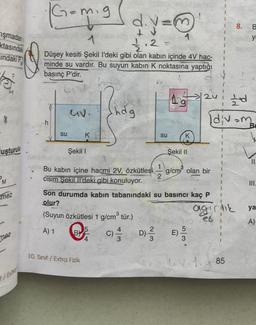 G=m.g
d.v=m
1
1/2 . 2 =
1
Düşey kesiti Şekil I'deki gibi olan kabın içinde 4V hacminde su vardır. Bu suyun kabın K noktasına yaptığı basınç P'dir.
4V
hdg
1g
2V
1/2 d
d.v=m
h
su
K
su
K
Şekil I
Şekil II
Bu kabın içine hacmi 2V, özkütlesi 1/2 g/cm³ olan bir cisim Şekil II'deki gibi konuluyor.
Son durumda kabın tabanındaki su basıncı kaç P olur?
(Suyun özkütlesi 1 g/cm³ tür.)
A) 1
B) 5/4
C) 4/3
D) 2/3
E) 5/3
10. Sınıf / Extra Fizik
85
8.
II.
III.
A)